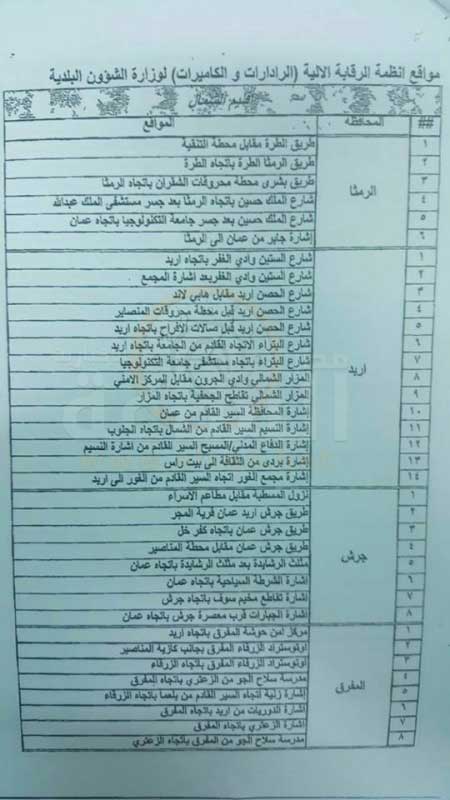 مواقع انظمة الرقابة الالية (الرادارات و الكاميرات) لوزارة الشؤون البلدية
إقليم الشمال
## المحافظة المواقع
الرمثا
١ طريق الطرة مقابل محطة التنقية
٢ طريق الرمثا الطرة باتجاه الطرة
٣ طريق بشرى محطة محروقات الشقران باتجاه الرمثا
٤ شارع الملك حسين باتجاه الرمثا بعد جسر مستشفى الملك عبدالله
٥ شارع الملك حسين بعد جسر جامعة التكنولوجيا باتجاه عمان
٦ إشارة جابر من عمان الى الرمثا
اربد
١ شارع الستين وادي الغفر باتجاه اربد
٢ شارع الستين وادي الغفربعد اشارة المجمع
٣ شارع الحصن اربد مقابل هابي لاند
٤ شارع الحصن اربد قبل محطة محروقات المناصير
٥ شارع الحصن اربد قبل صالات الأفراح باتجاه اربد
٦ شارع البتراء الاتجاه القادم من الجامعة باتجاه اربد
٧ شارع البتراء باتجاه مستشفى جامعة التكنولوجيا
٨ المزار الشمالي وادي الجرون مقابل المركز الامني
٩ المزار الشمالي تقاطع الجحفية باتجاه المزار
١٠ إشارة المحافظة السير القادم من عمان
١١ إشارة النسيم السير القادم من الشمال باتجاه الجنوب
١٢ إشارة الدفاع المدني/المسبح السير للقادم من اشارة النسيم
١٣ إشارة بردى من الثقافة الى بيت راس
١٤ إشارة مجمع الغور اتجاه السير القادم من الغور الى اربد
جرش
١ نزول المسطبة مقابل مطاعم الاسراء
٢ طريق جرش اربد عمان قرية المجر
٣ طريق جرش عمان باتجاه كفر خل
٤ طريق جرش عمان مقابل محطة المناصير
٥ مثلث الرشايدة بعد مثلث الرشايدة باتجاه عمان
٦ إشارة الشرطة السياحية باتجاه عمان
٧ إشارة تقاطع مخيم سوف باتجاه جرش
٨ اشارة الجبارات قرب معصرة جرش باتجاه عمان
المفرق
١ مركز امن حوشة المفرق باتجاه اربد
٢ اوتوستراد الزرقاء المفرق بجانب كازية المناصير
٣ اوتوستراد الزرقاء المفرق باتجاه الزرقاء
٤ مدرسة سلاح الجو من الزعتري باتجاه المفرق
٥ إشارة زنية اتجاه السير القادم من بلعما باتجاه الزرقاء
٦ اشارة الدوريات من اربد باتجاه المفرق
٧ اشارة الزعتري باتجاه المفرق
٨ مدرسة سلاح الجو من المفرق باتجاه الزعتري